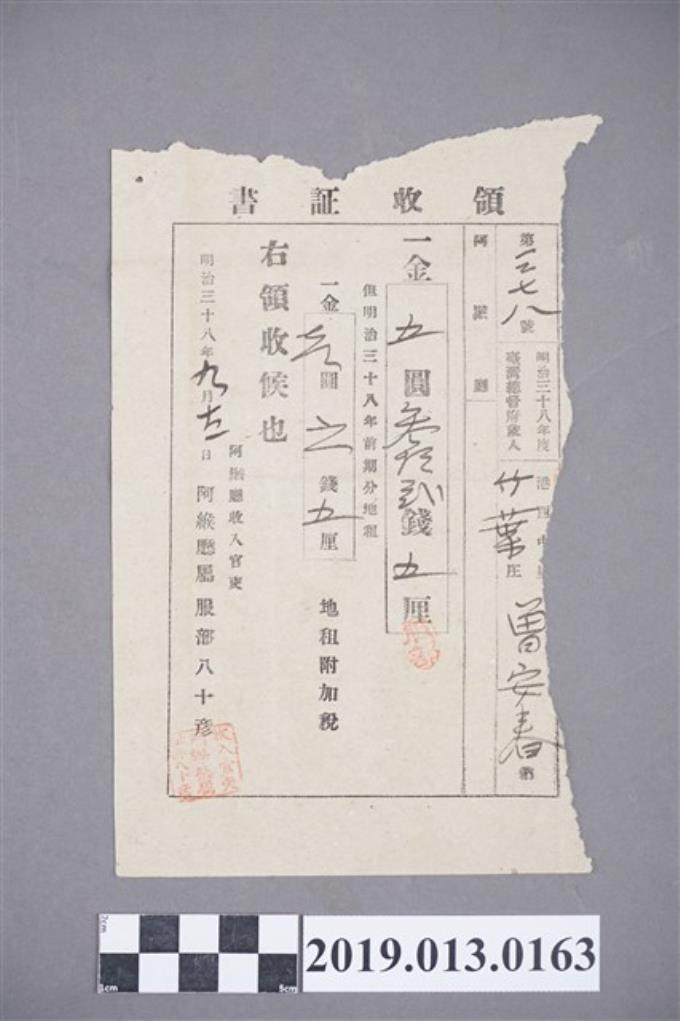 領收証書
第三七八號
明治三十八年度
臺灣總督府歲入
港西中里
竹葉庄
曽安春 納
阿緱廳
一金五圓叁拾弍錢五厘
但明治三十八年前期分地租
一金 圓 錢五厘 地租附加稅
右領收候也
明治三十八年九月 日
阿緱廳收入官吏
阿緱廳屬服部八十彦
2cm
1cm
5cm
2019.013.0163